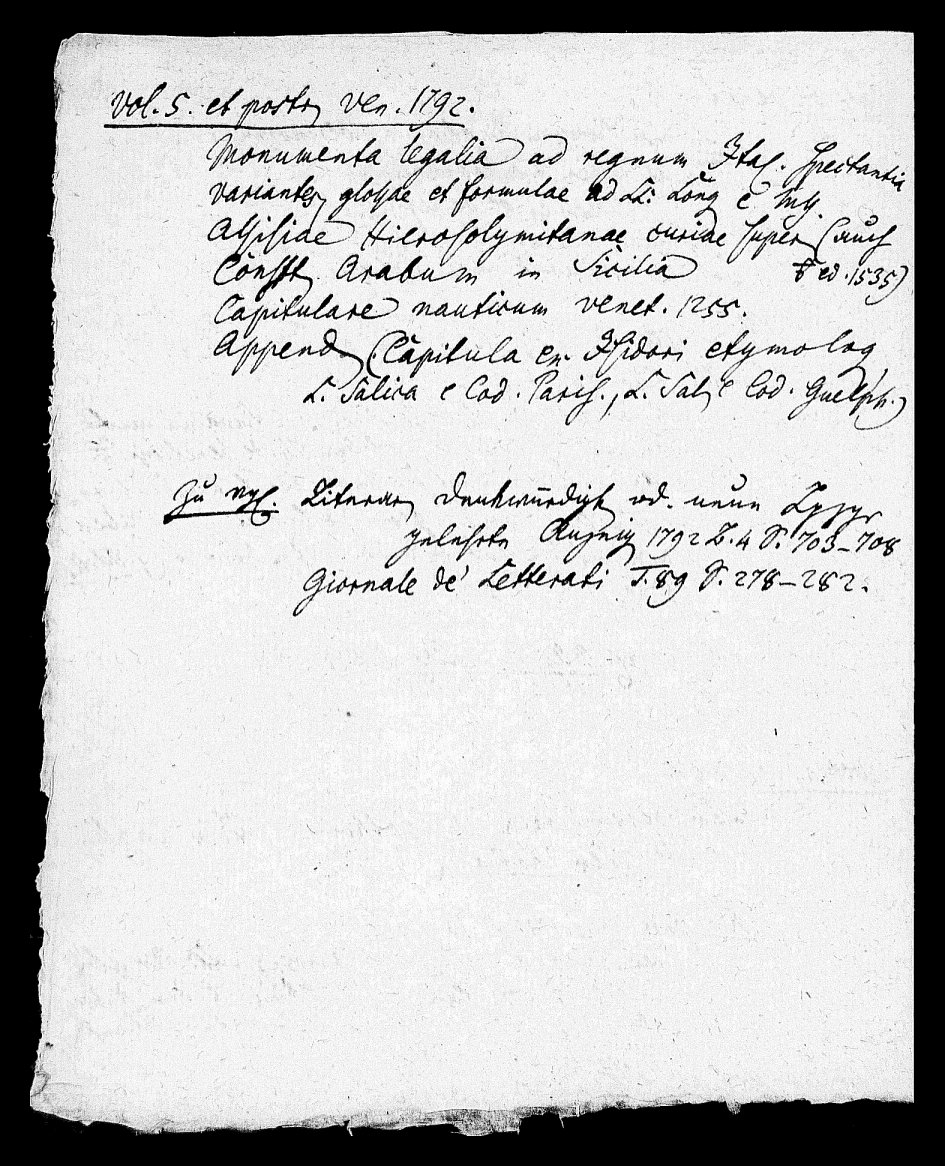 Vol. 5. et postr. Ven. 1792.
Monumenta legalia ad regnum Ital. spectantia
variantes, glossae et formulae ad LL. Long. e
Assisiae Hierosolymitanae curiae super. (auch
Constt. Arabum in Sicilia ed. 1535)
Capitulare nauticum venet. 1255.
Append. (Capitula ex Isidori etymolog.
L. Salica e Cod. Paris., L. Sal. e Cod. Guelph.)
Zu vgl. Literar. Denkwürdigk. od. neue Lpzgr
gelehrte Anzeig. 1792 B. 4 S. 703–708
Giornale de' Letterati T. 89 S. 278–282.